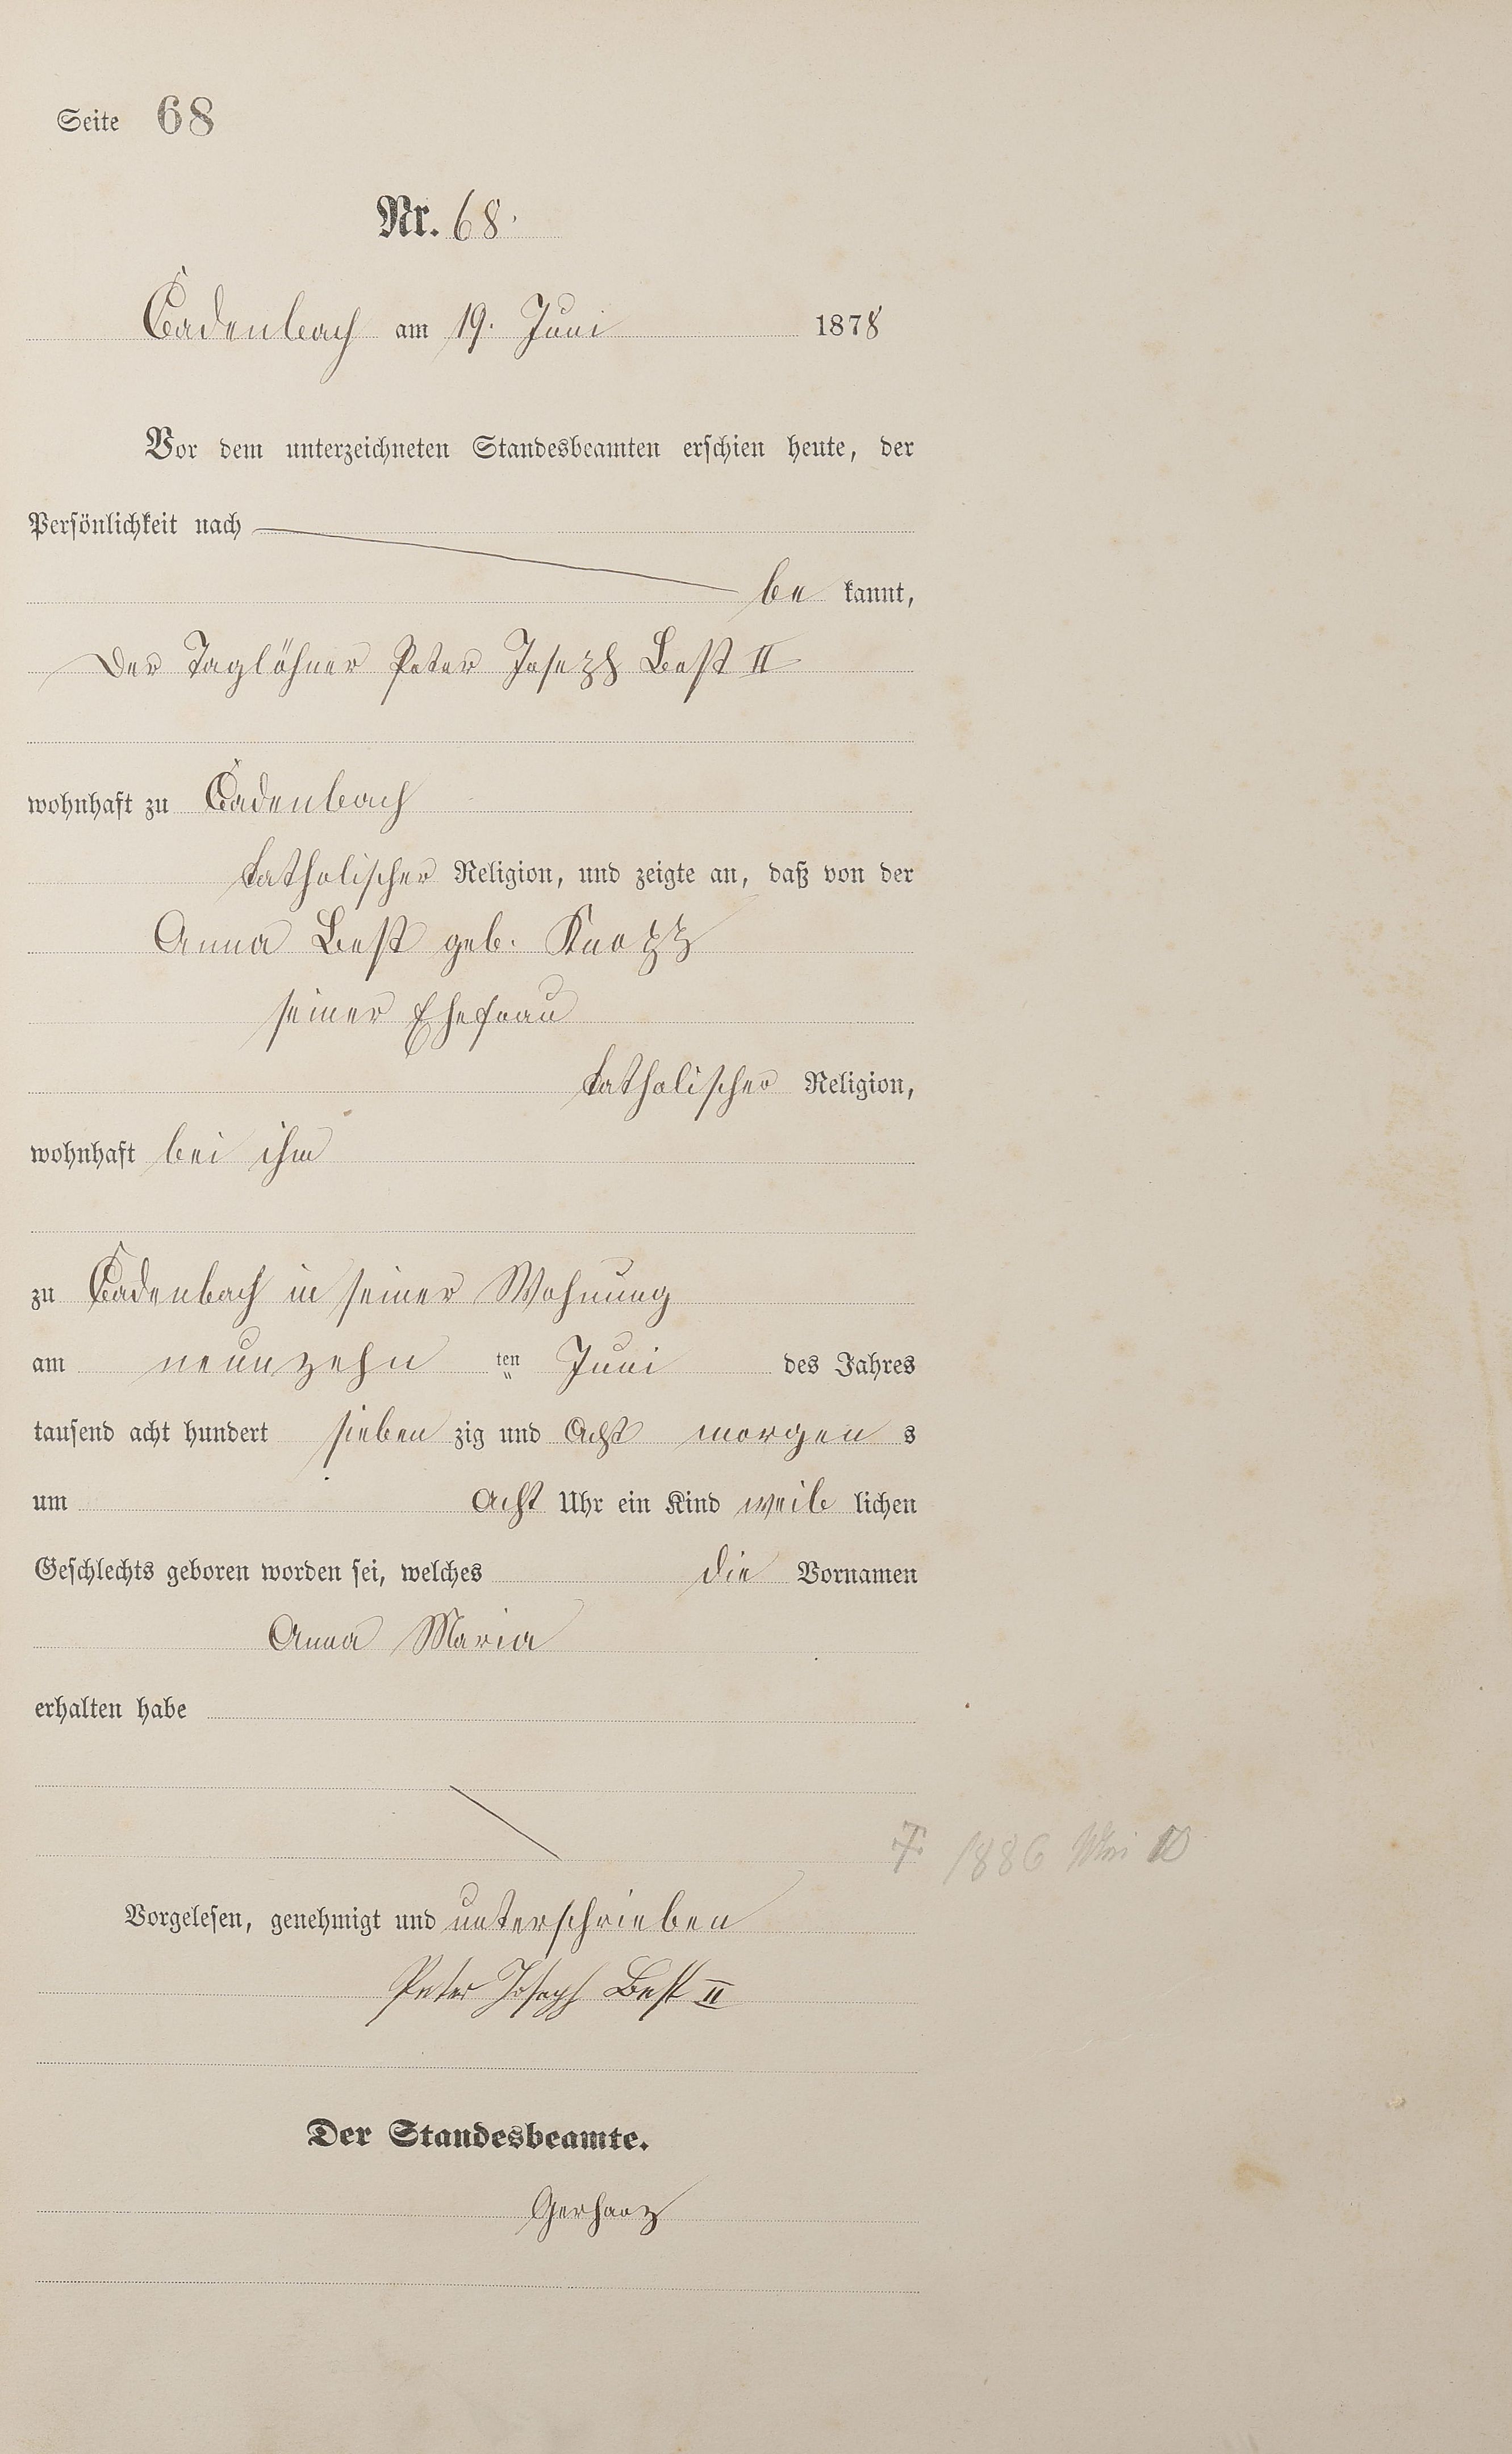 Seite 68
Nr. 68.
Cadenbach am 19. Juni 1878
Vor dem unterzeichneten Standesbeamten erschien heute, der
Persönlichkeit nach
be kannt,
Der Taglöhner Peter Joseph Best II
wohnhaft zu Cadenbach
katholischer Religion, und zeigte an, daß von der
Anna Best geb. Knopp
seiner Ehefrau
katholischer Religion,
wohnhaft bei ihm
zu Cadenbach in seiner Wohnung
am neunzehn ten Juni des Jahres
tausend acht hundert sieben zig und Acht morgen s
um Acht Uhr ein Kind weib lichen
Geschlechts geboren worden sei, welches die Vornamen
Anna Maria
erhalten habe
† 1886 Mai 10
Vorgelesen, genehmigt und unterschrieben
Peter Joseph Best II
Der Standesbeamte.
Gerharz